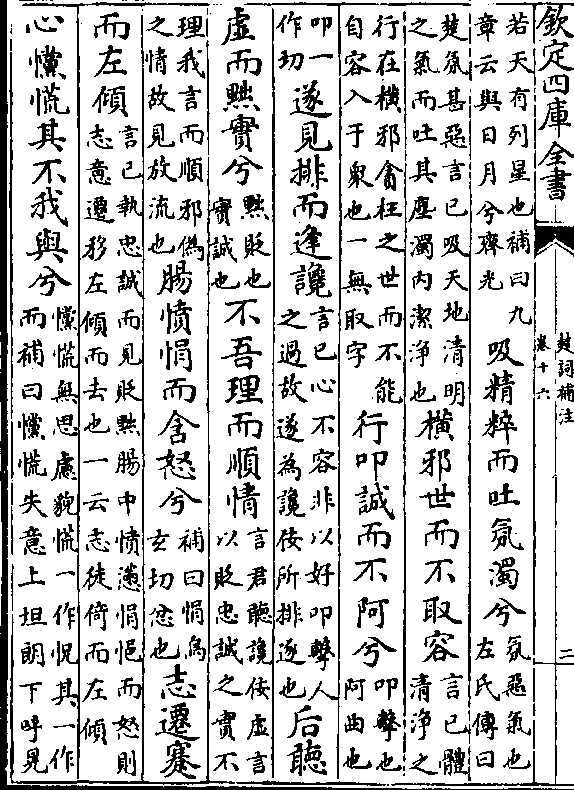 欽定四庫全書
楚詞補注
卷十六
二
若天有列星也補曰九
章云與日月兮齊光
吸精粹而吐氛濁兮
氛惡氣也
左氏傳曰
楚氛甚惡言已吸天地清明
之氣而吐其塵濁内潔淨也
橫邪世而不取容
言已體
清淨之
行在橫邪貪枉之世而不能
自容入于衆也一無取字
行叩誠而不阿兮
叩擊也
阿曲也
叩一
作切
遂見排而逢讒
言已心不容非以好叩擊人
之過故遂為讒佞所排逐也
后聽
虚而黜實兮
黜貶也
實誠也
不吾理而順情
言君聽讒佞虛言
以貶忠誠之實不
理我言而順邪偽
之情故見放流也
腸憤悁而含怒兮
補曰悁烏
玄切忿也
志遷蹇
而左傾
言已執忠誠而見貶黜腸中憤懣悁悒而怒則
志意遷移左傾而去也一云志徙倚而左傾
心戃慌其不我與兮
戃慌無思慮貌慌一作怳其一作
而補曰戃慌失意上坦朗下呼晃